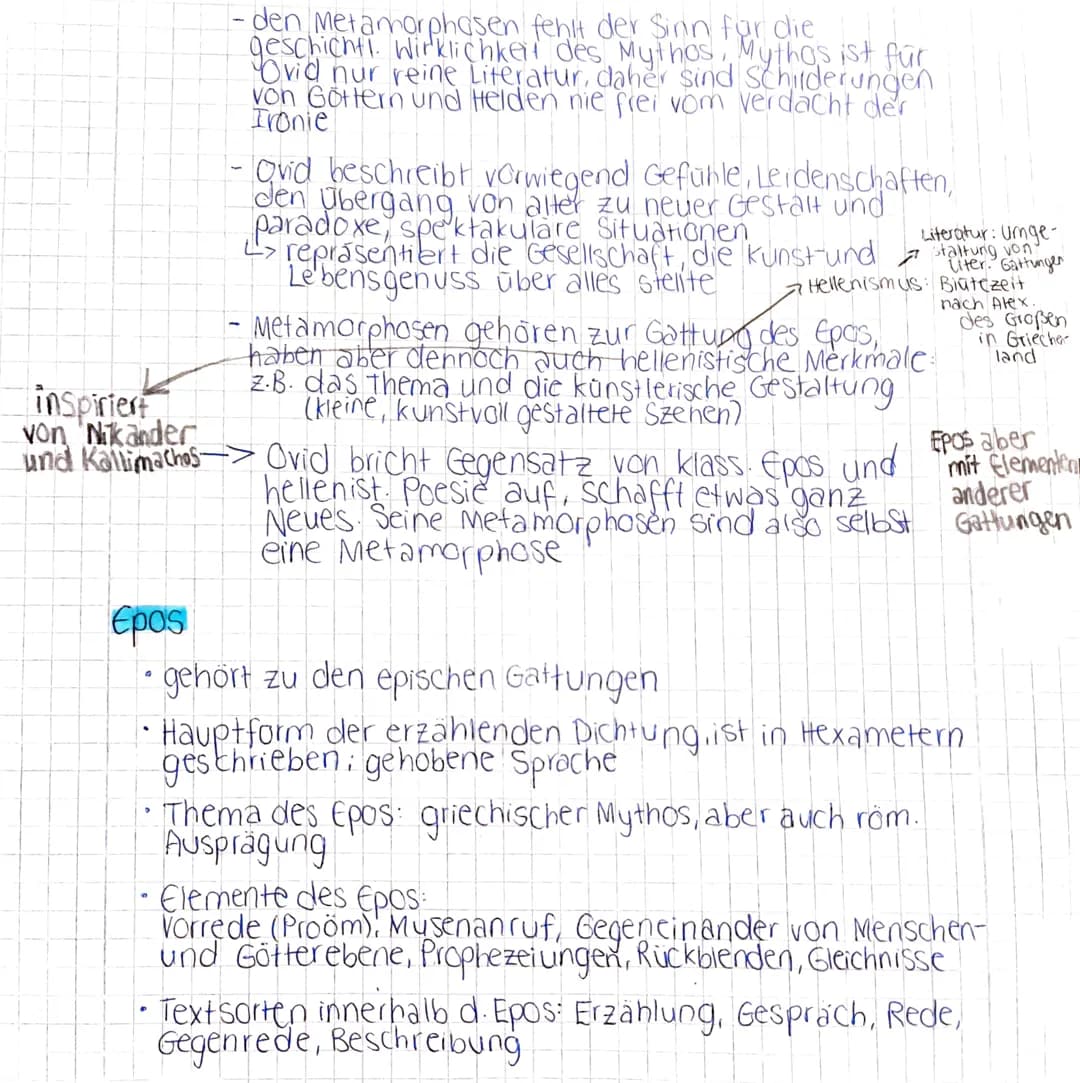 - den Metamorphosen fehlt der Sinn für die
geschichtl. Wirklichkeit des Mythos, Mythos ist für
Ovid nur reine Literatur, daher sind Schilderungen
von Göttern und Helden nie frei vom Verdacht der
Ironie
- Ovid beschreibt vorwiegend Gefühle, Leidenschaften,
den Übergang von alter zu neuer Gestalt und
paradoxe, spektakuläre Situationen
↳ repräsentiert die Gesellschaft, die Kunst-und
Lebensgenuss über alles stellte
Literatur: Umge-
staltung von
liter. Gattungen
Hellenismus: Blütezeit
nach Alex.
des Großen
in Griechen
land
- Metamorphosen gehören zur Gattung des Epos,
haben aber dennoch auch hellenistische Merkmale:
z.B. das Thema und die künstlerische Gestaltung
(kleine, kunstvoll gestaltete Szenen)
inspiriert
von Nikander
und Kallimachos
→ Ovid bricht Gegensatz von klass. Epos und
hellenist. Poesie auf, schafft etwas ganz
Neues. Seine Metamorphosen sind also selbst
eine Metamorphose
Epos aber
mit Elementen
anderer
Gattungen
Epos
• gehört zu den epischen Gattungen
• Hauptform der erzählenden Dichtung, ist in Hexametern
geschrieben; gehobene Sprache
• Thema des Epos: griechischer Mythos, aber auch röm.
Ausprägung
• Elemente des Epos:
Vorrede (Proöm), Musenanruf, Gegeneinander von Menschen-
und Götterebene, Prophezeiungen, Rückblenden, Gleichnisse
• Textsorten innerhalb d. Epos: Erzählung, Gespräch, Rede,
Gegenrede, Beschreibung